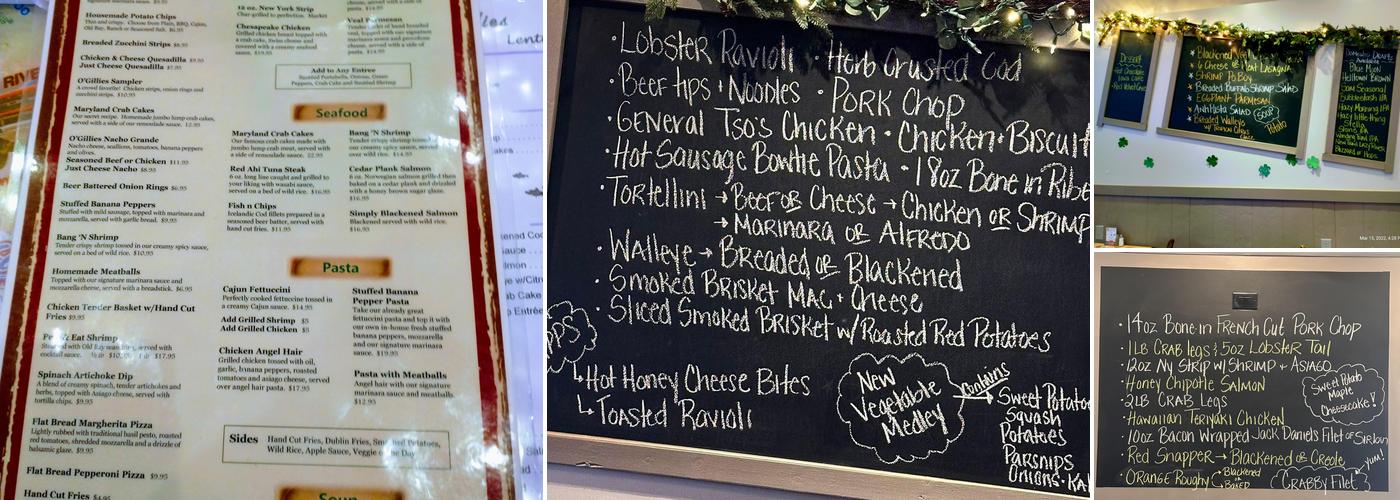 RIVE
signature marinara sauce. $9.95
Housemade Potato Chips
Thin and crispy. Choose from Plain, BBQ, Cajun,
Old Bay, Ranch or Seasoned Salt. $6.95
Breaded Zucchini Strips $8.95
Chicken & Cheese Quesadilla $9.95
Just Cheese Quesadilla $7.95
O'Gillies Sampler
A crowd favorite! Chicken strips, onion rings and
zucchini strips. $10.95
Maryland Crab Cakes
Our secret recipe. Homemade jumbo lump crab,
served with a side of our remoulade sauce. 12.95
O'Gillies Nacho Grande
Nacho cheese, scallions, tomatoes, banana peppers
and olives.
Seasoned Beef or Chicken $11.95
Just Cheese Nacho $8.95
Beer Battered Onion Rings $6.95
Stuffed Banana Peppers
Stuffed with mild sausage, topped with marinara and
mozzarella, served with garlic bread. $9.95
Bang 'N Shrimp
Tender crispy shrimp tossed in our creamy spicy sauce,
served on a bed of wild rice. $10.95
Homemade Meatballs
Topped with our signature marinara sauce and
mozzarella cheese, served with a breadstick. $6.95
Chicken Tender Basket w/Hand Cut
Fries $9.95
& Eat Shrimp
with Old Bay seasoning, served with
cocktail sauce. $17.95
Spinach Artichoke Dip
A blend of creamy spinach, tender artichokes and
herbs, topped with Asiago cheese, served with
tortilla chips. $9.95
Flat Bread Margherita Pizza
Lightly rubbed with traditional basil pesto, roasted
red tomatoes, shredded mozzarella and a drizzle of
balsamic glaze. $9.95
Flat Bread Pepperoni Pizza $9.95
Hand Cut Fries $4.95
12 oz. New York Strip
Char-grilled to perfection. Market
Chesapeake Chicken
Grilled chicken breast topped with
a crab cake, Swiss cheese and
covered with a creamy seafood
sauce. $19.95
Veal Parmesan
Tender cutlet of hand breaded
veal, topped with our signature
marinara sauce and provolone
cheese, served with a side of
pasta. $14.95
Add to Any Entree
Sauteed Portabella, Onions, Green
Peppers, Crab Cake and Sauteed Shrimp
Seafood
Maryland Crab Cakes
Our famous crab cakes made with
jumbo lump crab meat, served with
a side of remoulade sauce. 22.95
Red Ahi Tuna Steak
6 oz. long line caught and grilled to
your liking with wasabi sauce,
served on a bed of wild rice. $16.95
Fish n Chips
Icelandic Cod fillets prepared in a
seasoned beer batter, served with
hand cut fries. $11.95
Bang 'N Shrimp
Tender crispy shrimp tossed in
our creamy spicy sauce, served
over wild rice. $14.95
Cedar Plank Salmon
6 oz. Norwegian salmon grilled then
baked on a cedar plank and drizzled
with a honey brown sugar glaze.
$16.95
Simply Blackened Salmon
Blackened served with wild rice.
$16.95
Pasta
Cajun Fettuccini
Perfectly cooked fettuccine tossed in
a creamy Cajun sauce. $14.95
Add Grilled Shrimp $5
Add Grilled Chicken $5
Chicken Angel Hair
Grilled chicken tossed with oil,
garlic, banana peppers, roasted
tomatoes and asiago cheese, served
over angel hair pasta. $17.95
Stuffed Banana
Pepper Pasta
Take our already great
fettuccini pasta and top it with
our own in-house fresh stuffed
banana peppers, mozzarella
and our signature marinara
sauce. $19.95
Pasta with Meatballs
Angel hair with our signature
marinara sauce and meatballs.
$12.95
Sides Hand Cut Fries, Dublin Fries, Smashed Potatoes,
Wild Rice, Apple Sauce, Veggie of the Day
Soup
· Lobster Ravioli · Herb Crusted Cod
· Beef tips + Noodles · Pork Chop
· General Tso's Chicken · Chicken + Biscuit
· Hot Sausage Bowtie Pasta · 18oz Bone in Ribe
· Tortellini → Beef or Cheese → Chicken or Shrimp
→ Marinara or Alfredo
· Walleye → Breaded or Blackened
· Smoked Brisket Mac + Cheese
· Sliced Smoked Brisket w/ Roasted Red Potatoes
PPS
↳ Hot Honey Cheese Bites
↳ Toasted Ravioli
New
Vegetable
Medley
Contains
→ Sweet Potatoe
Squash
Potatoes
Parsnips
Onions · Kal
Dessert
Hot Chocolate
Lava Cake
Red Velvet
* Blackened
* 6 Cheese or Meat Lasagna
* Shrimp Po Boy
* Breaded Buffalo Shrimp Salad
* Eggplant Parmesan
* Antipasta Salad
* Breaded Walleye
Soup
Potato
Domestic Drafts
Available
Blue Moon
Helltown Brown
Sam Seasonal
Hazy Little thing
Stella
Mar 15, 2022, 4:09 P
· 14oz Bone-in French Cut Pork Chop
· 1LB Crab legs & 5oz Lobster Tail
· 12oz Ny Strip w/ Shrimp + Asiago
· Honey Chipotle Salmon
· 2LB Crab Legs
· Hawaiian Teriyaki Chicken
· 10oz Bacon Wrapped Jack Daniels Filet of Sirloin
· Red Snapper → Blackened or Creole
· Orange Roughy → Blackened
or
Baked
Sweet Potato
Maple
Cheesecake!
Crabby Filet
Yum!